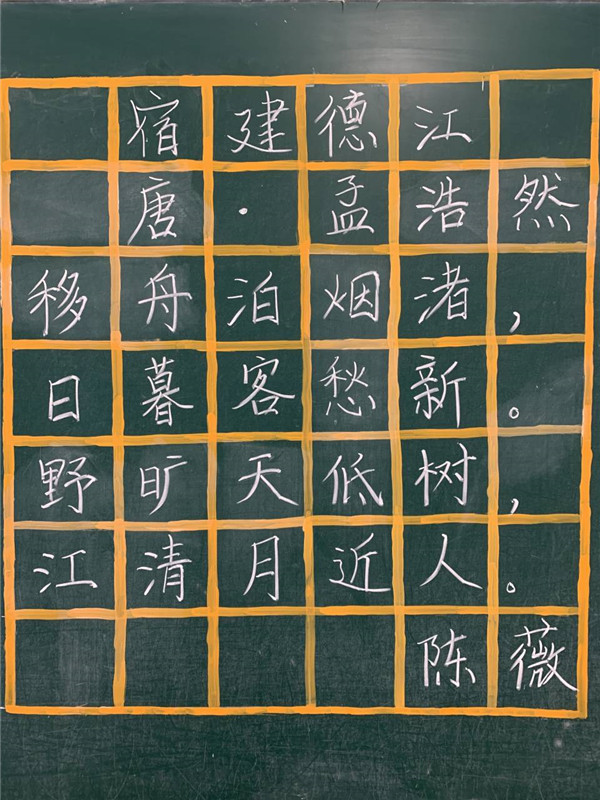 宿建德江
唐·孟浩然
移舟泊烟渚，
日暮客愁新。
野旷天低树，
江清月近人。
陈薇